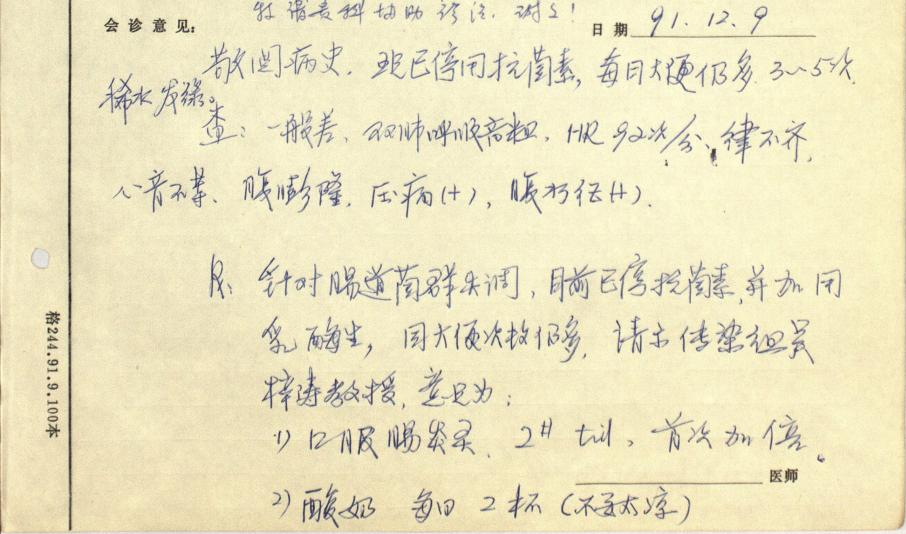 特请贵科协助诊治，谢谢！
会诊意见：
日期 91.12.9
敬阅病史．现已停用抗菌素，每日大便仍多．3～5次．
稀水发绿。
查：一般差、双肺呼吸音粗．HR 92次/分、律不齐，
心音不等．腹膨隆．压痛(+)，腹水征(+)．
R: 针对肠道菌群失调，目前已停抗菌素，并加用
乳酶生，因大便次数仍多，请示传染组吴
梓涛教授，意见为：
1) 口服肠炎灵．2# tid、首次加倍。
医师
2) 酸奶 每日 2杯（不要太凉）
格244.91.9.100本